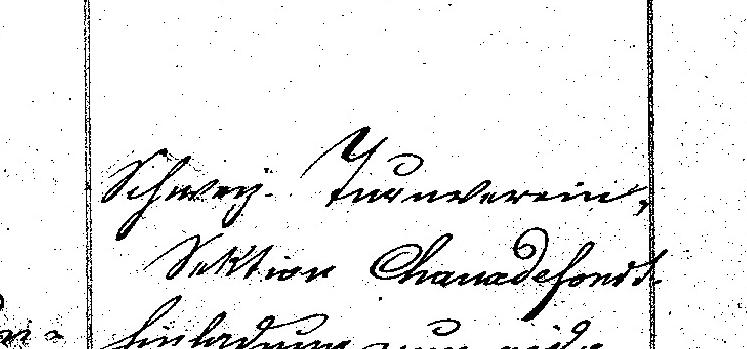 Schweiz. Turnverein,
Sektion Chauxdefonds.
Einladung zum eidg.